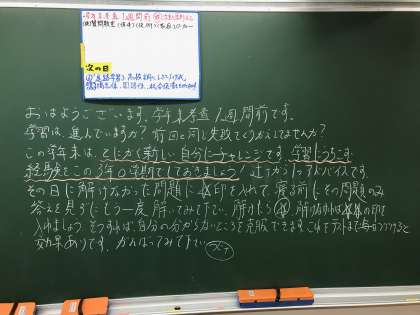 次の日
おはようございます。学年末考査1週間前です。
学習は、進んでいますか？前回と同じ失敗をくりかえしてませんか？
この学年末は、とにかく新しい自分にチャレンジです。学習にうちこむ
経験をこの3年0学期でしておきましょう！ 辻からのアドバイスです。
その日に解けなかった問題に印を入れて、寝る前にその問題のみ
答えを見ずにもう一度解いてみて下さい。解けたら 解けなければ の印を
入れましょう。そうすれば、自分の分からないところを克服できます。これをテストまで毎日つづけると
効果ありです。がんばってみて下さい。